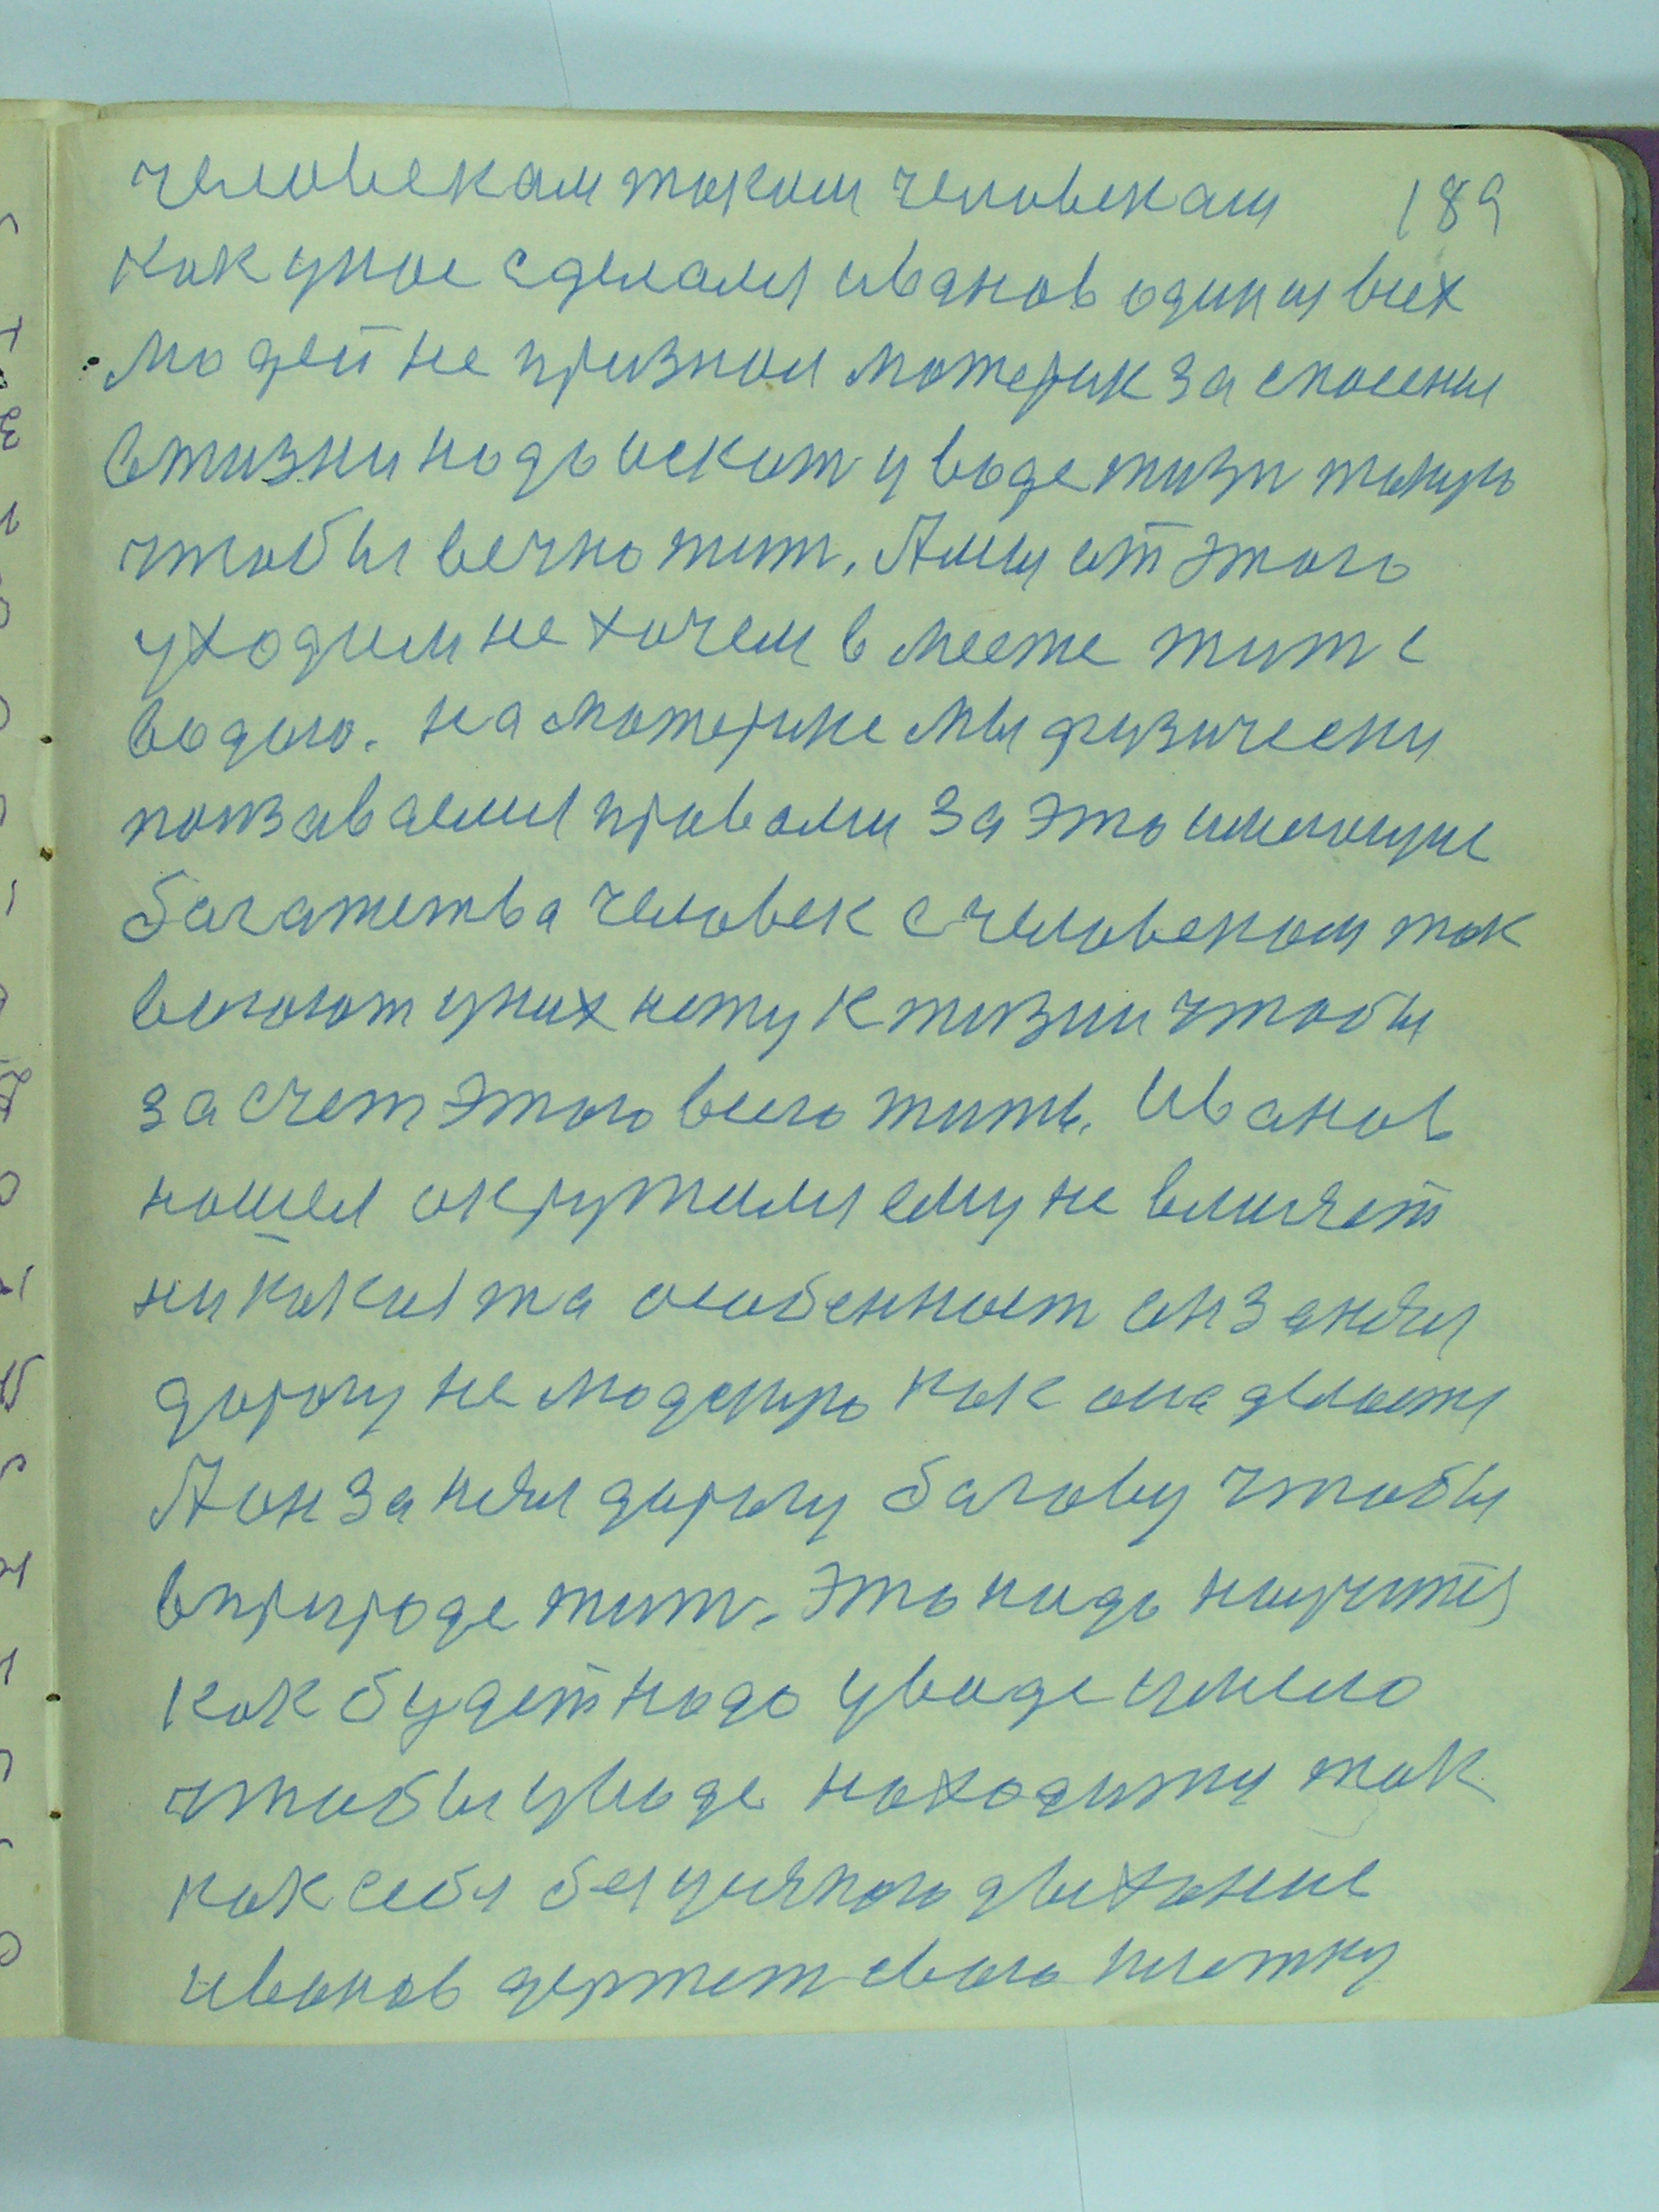 человекам таким человекам 189
как у нас сделался иванов один из всех
людей не признал материк за спасения
в жизни надо искат у воде жизн такую
чтобы вечно жит. А мы от этого
уходим не хочем в месте жит с
водою. на материке мы физически
ползаваемся правами за это имеющие
багатетва человек с человеком так
воюют у них нету к жизни чтобы
за счет этого всего жить. Иванов
нашел окружился ему не влияет
ни какая та особенност он занял
дорогу не людскую как она делается
А он занял дорогу багову чтобы
в природе жит. это надо научится
как будет надо у воде имело
чтобы у воде находится так
как себя без усякого дыхание
иванов держет свою клетку